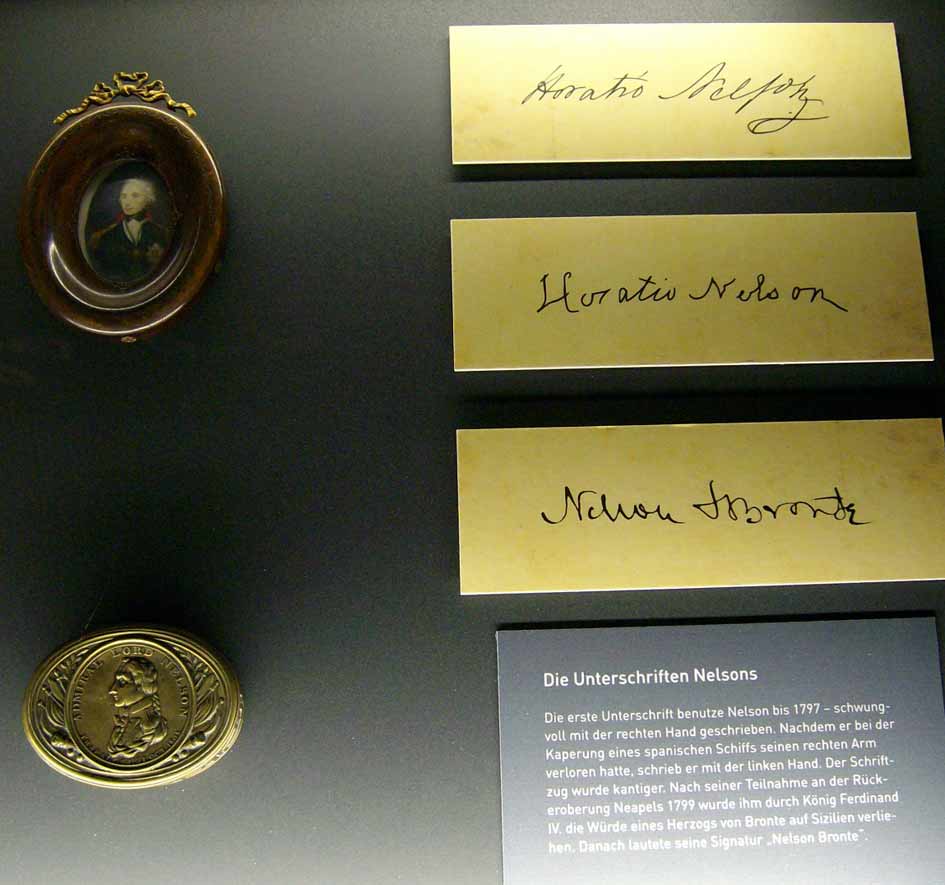 Horatio Nelson
Horatio Nelson
Nelson & Bronte
ADMIRAL LORD NELSON
Die Unterschriften Nelsons
Die erste Unterschrift benutze Nelson bis 1797 – schwung-
voll mit der rechten Hand geschrieben. Nachdem er bei der
Kaperung eines spanischen Schiffs seinen rechten Arm
verloren hatte, schrieb er mit der linken Hand. Der Schrift-
zug wurde kantiger. Nach seiner Teilnahme an der Rück-
eroberung Neapels 1799 wurde ihm durch König Ferdinand
IV. die Würde eines Herzogs von Bronte auf Sizilien verlie-
hen. Danach lautete seine Signatur „Nelson Bronte“.